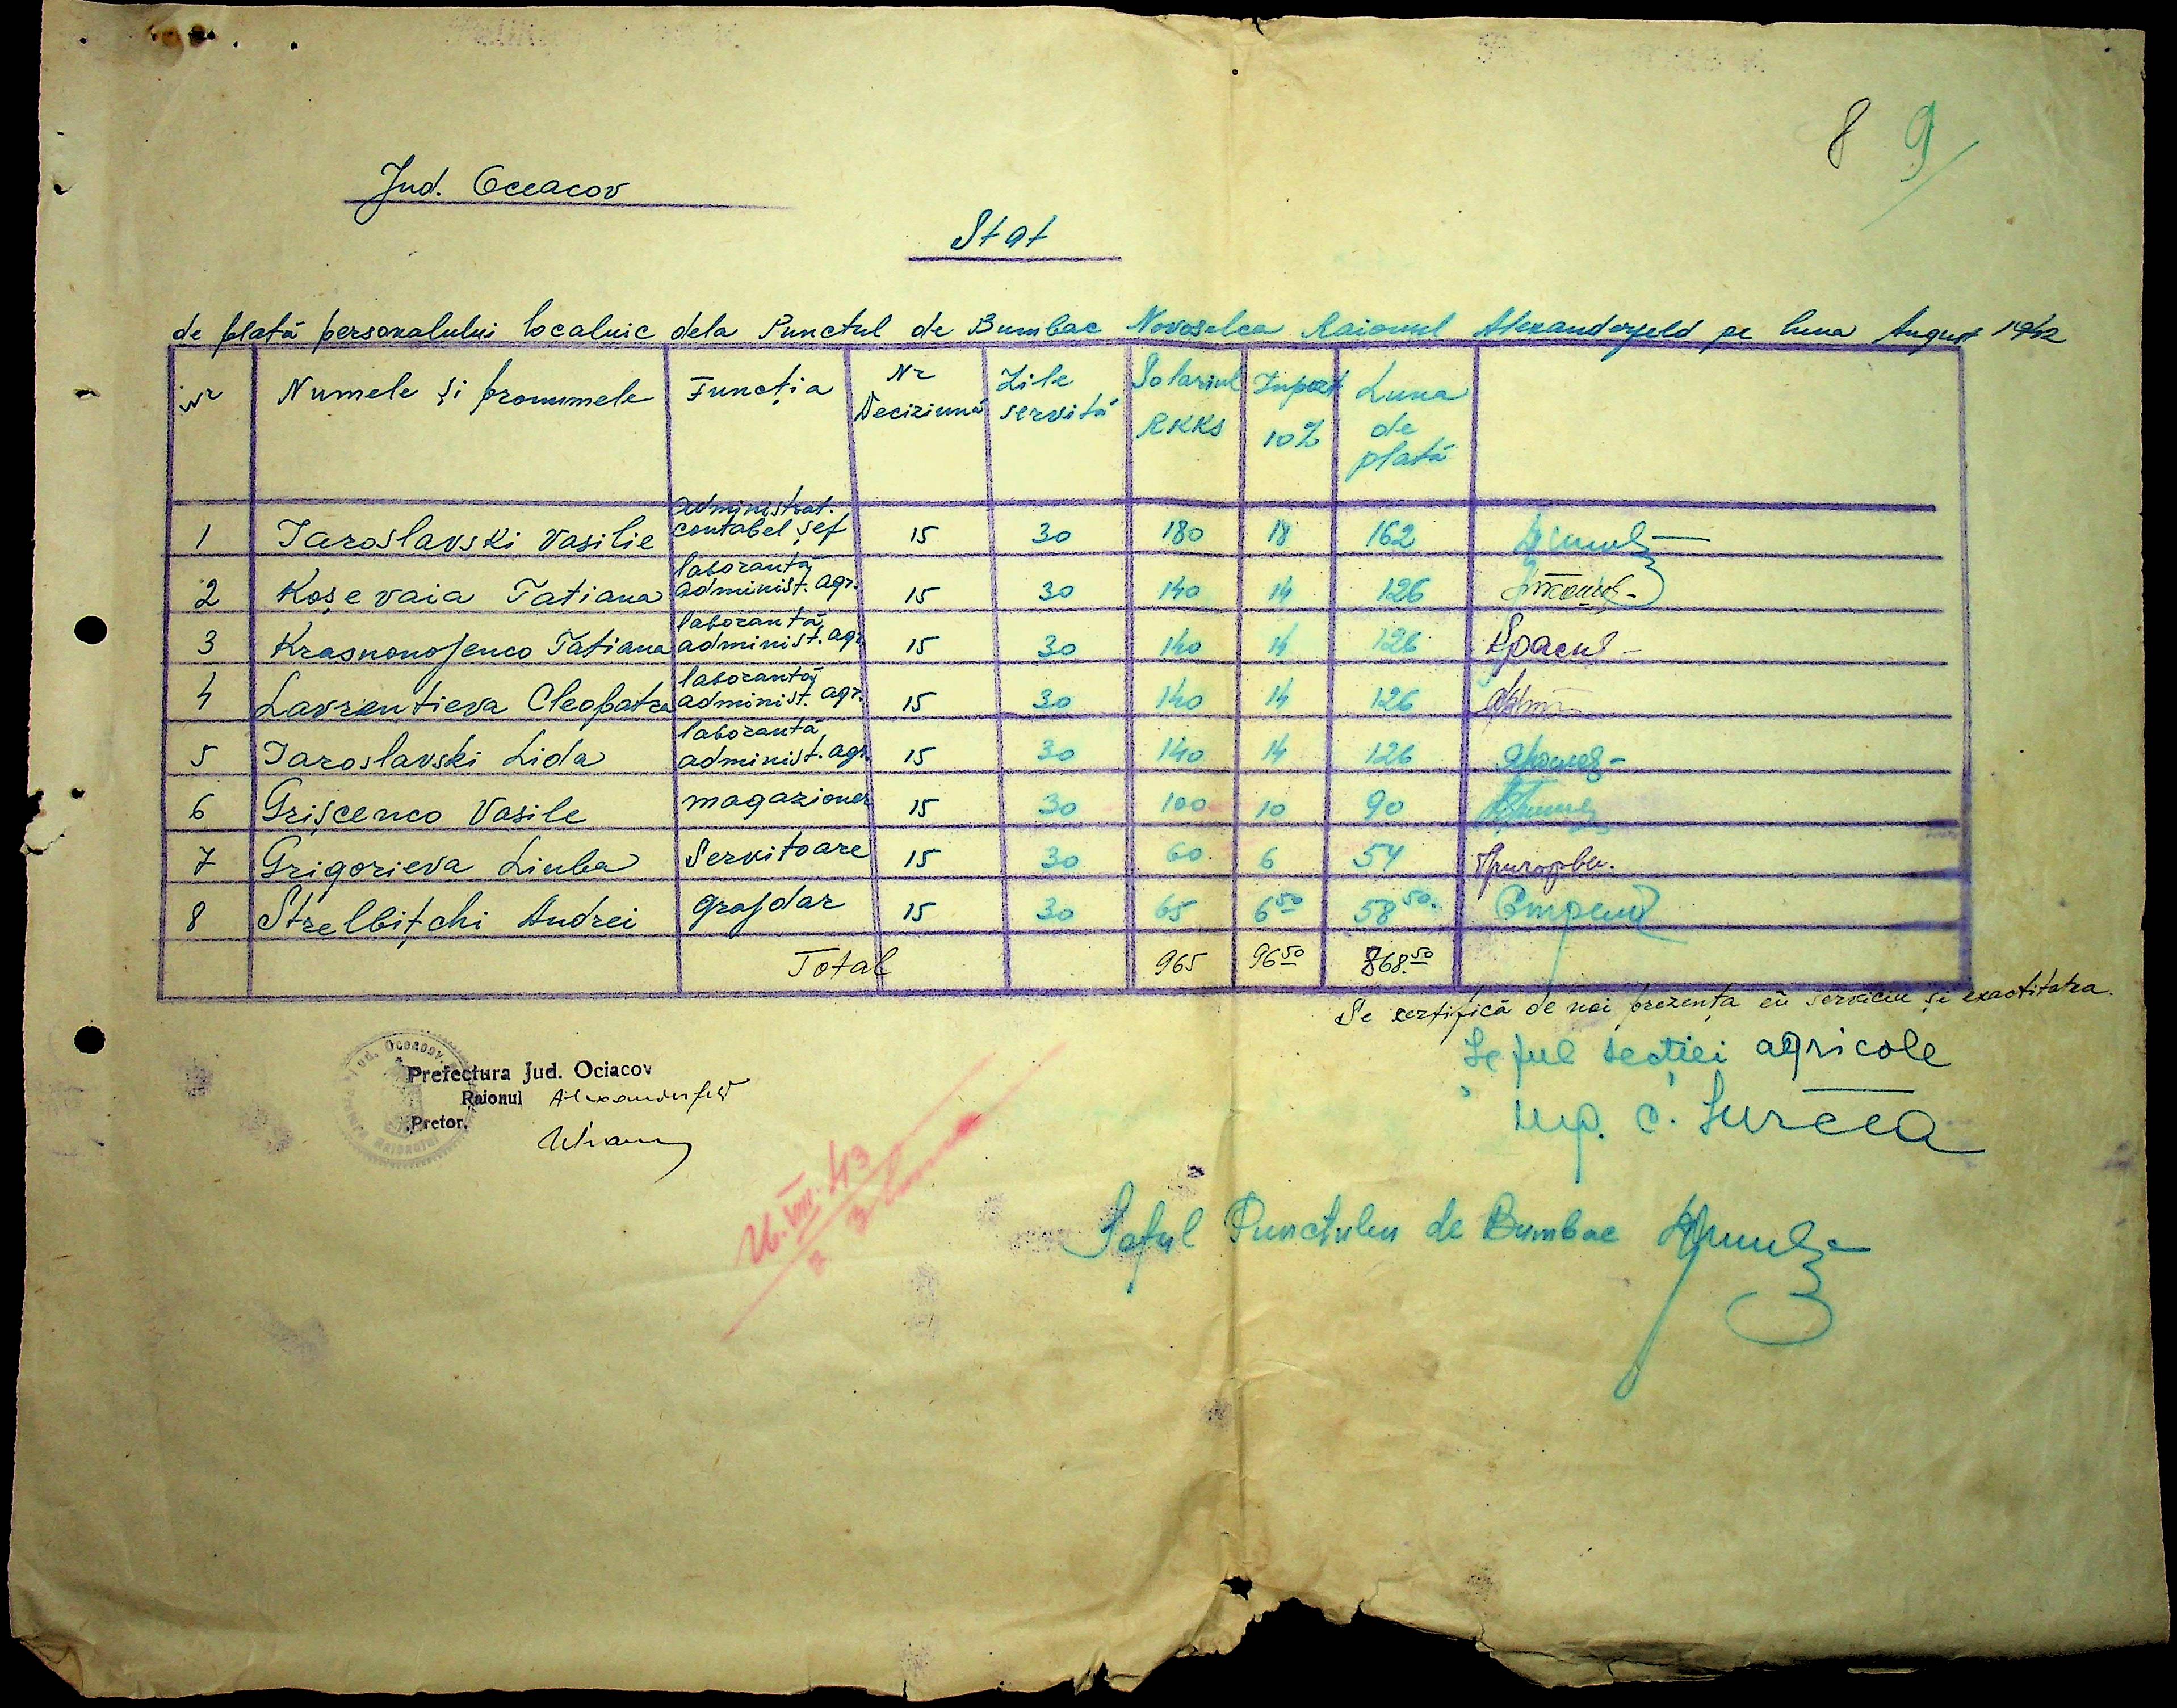 8 9
Jud. Oceacov
Stat
de plată personalului localnic dela Punctul de Bumbac Novoselca Raionul Alexanderfeld pe luna August 1942
Nr Numele și pronumele Funcția Nr Deciziună Zile servită Salariul RKKS Impozit 10% Luna de plată
1 Iaroslavski Vasilie administrat. contabel șef 15 30 180 18 162
2 Koșevaia Tatiana laborantă administ. agr. 15 30 140 14 126
3 Krasnonojenco Tatiana laborantă administ. agr. 15 30 140 14 126 Красн
4 Lavrentieva Cleopatra laborantă administ. agr. 15 30 140 14 126
5 Iaroslavski Lida laborantă administ. agr. 15 30 140 14 126
6 Grișcenco Vasile magazioner 15 30 100 10 90
7 Grigorieva Liuba Servitoare 15 30 60 6 54
8 Strelbițchi Andrei grajdar 15 30 65 6 50 58 50.
Total 965 96 50 868.50
Se certifică de noi prezența în serviciu și exactitatea.
Șeful secției agricole
Prefectura Jud. Ociacov
Raionul Alexanderfeld
Pretor,
Ing. C. Surcea
26.VIII.43
Șeful Punctului de Bumbac